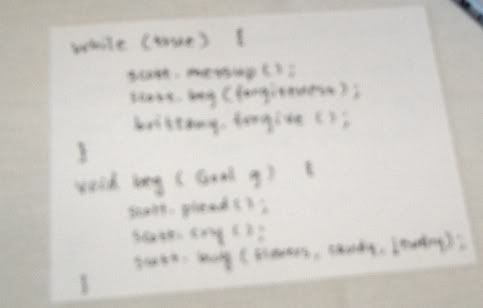 while (true) {
scott.messup();
scott.beg(forgiveness);
brittany.forgive();
}
void beg (Goal g) {
scott.plead();
scott.cry();
scott.buy(flowers, candy, jewelry);
}